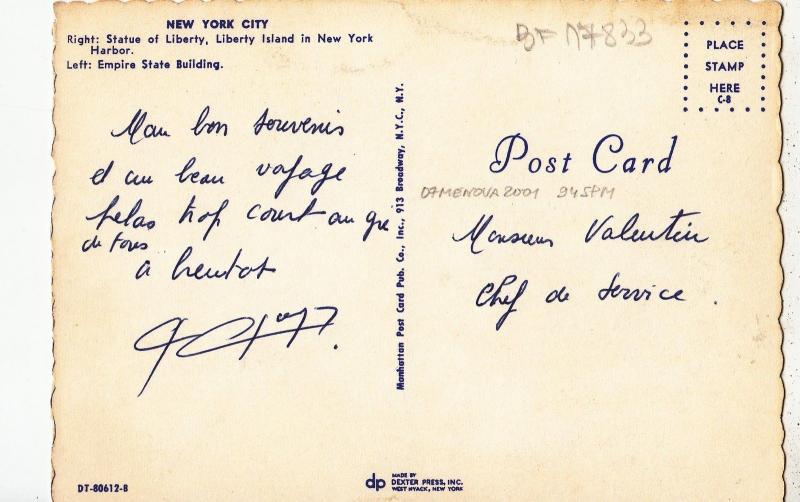 NEW YORK CITY
Right: Statue of Liberty, Liberty Island in New York
Harbor.
Left: Empire State Building.
PLACE
STAMP
HERE
C-8
Mon bon souvenir
et un beau voyage
helas trop court au gré
de tous
a bientot
Manhattan Post Card Pub. Co., Inc., 913 Broadway, N.Y.C., N.Y.
Post Card
Monsieur Valentin
Chef de service.
DT-80612-B
dp
MADE BY
DEXTER PRESS, INC.
WEST NYACK, NEW YORK